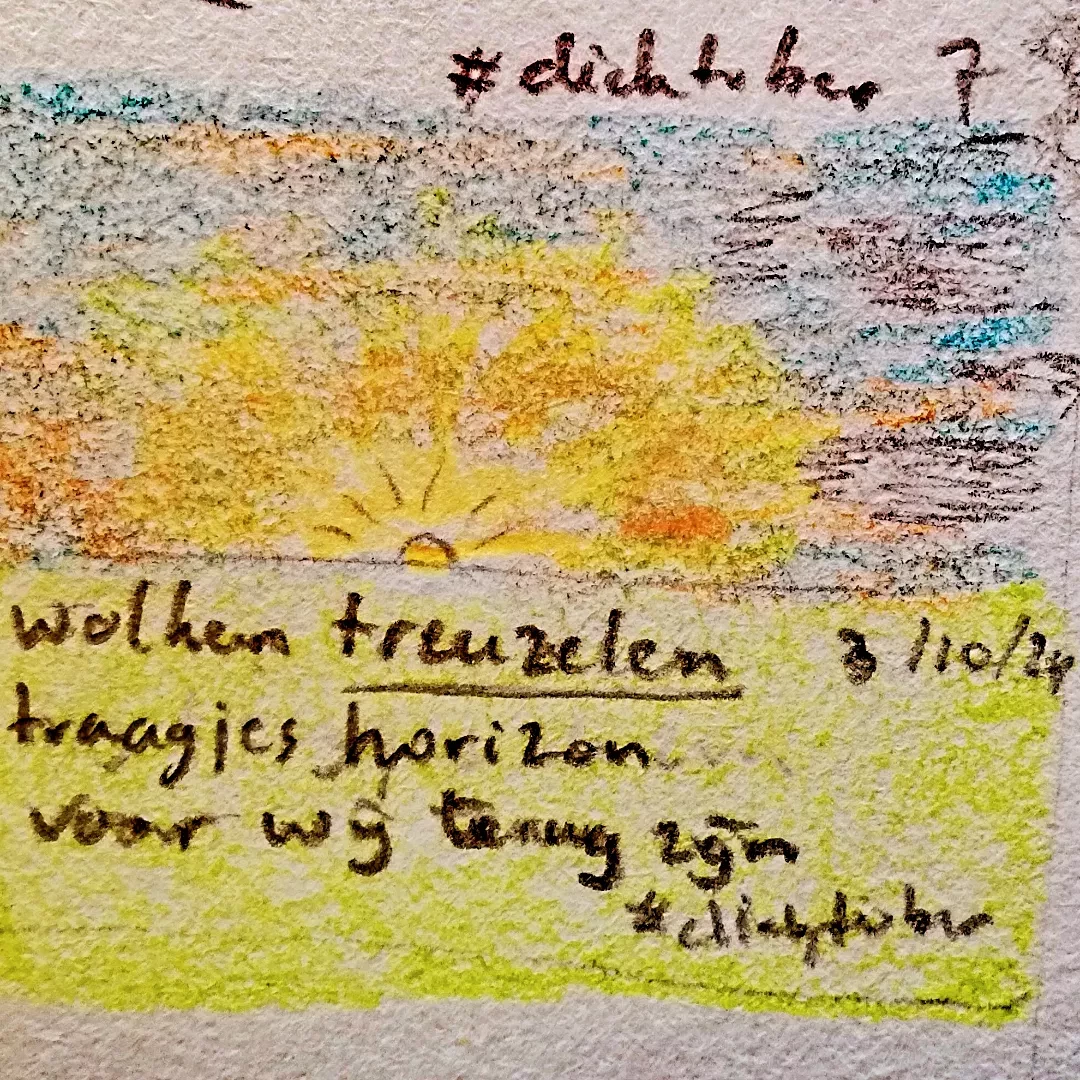 #dichtober 7
wolken treuzelen 3/10/24
traagjes horizon....
voor wij terug zijn
#dichtober